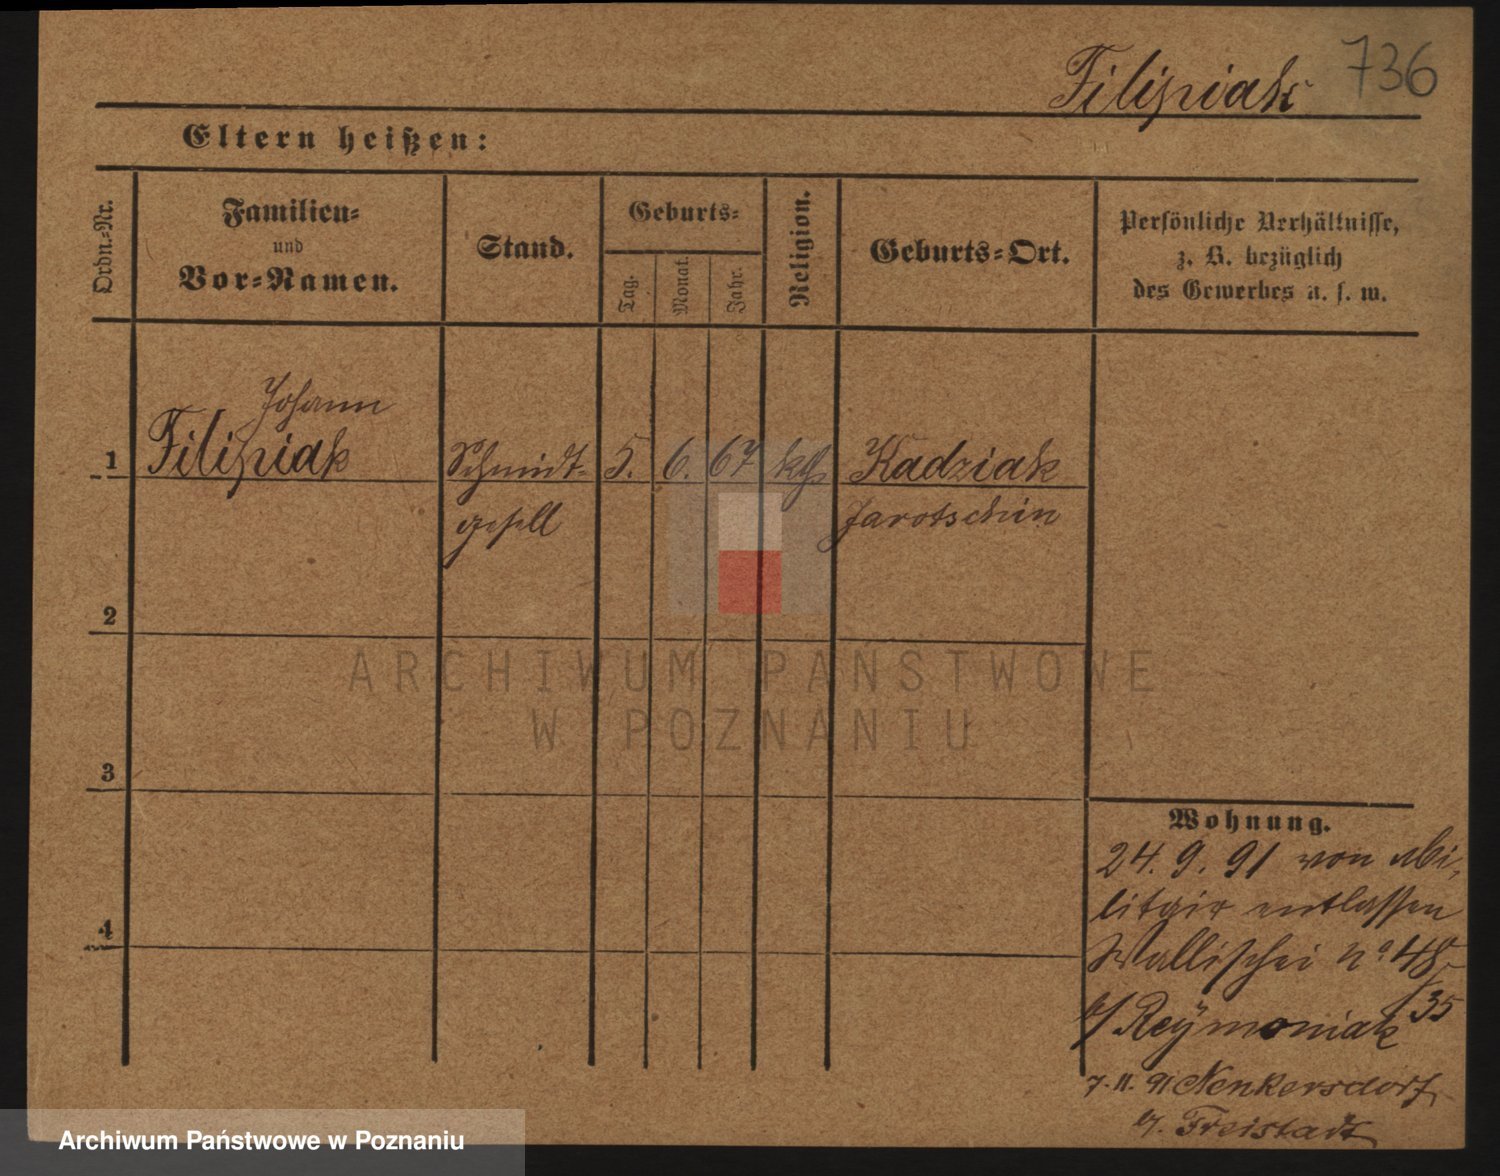 Filipiak 736
Eltern heißen:
Ordn.-Nr.
Familien-
und
Vor-Namen.
Stand.
Geburts-
Tag.
Monat.
Jahr.
Religion.
Geburts-Ort.
Persönliche Verhältnisse,
z. B. bezüglich
des Gewerbes u. s. w.
Johann
1 Filipiak Schmidt- 5. 6. 67 kth Kadziak
gesell Jarotschin
2
ARCHIWUM PAŃSTWOWE
W POZNANIU
3
Wohnung.
24. 9. 91 von Mi-
litair entlassen
4
Wallischei No 48
/35
b/ Reÿmoniak
7. 11. 91 Nenkersdorf
b/. Freistadt
Archiwum Państwowe w Poznaniu